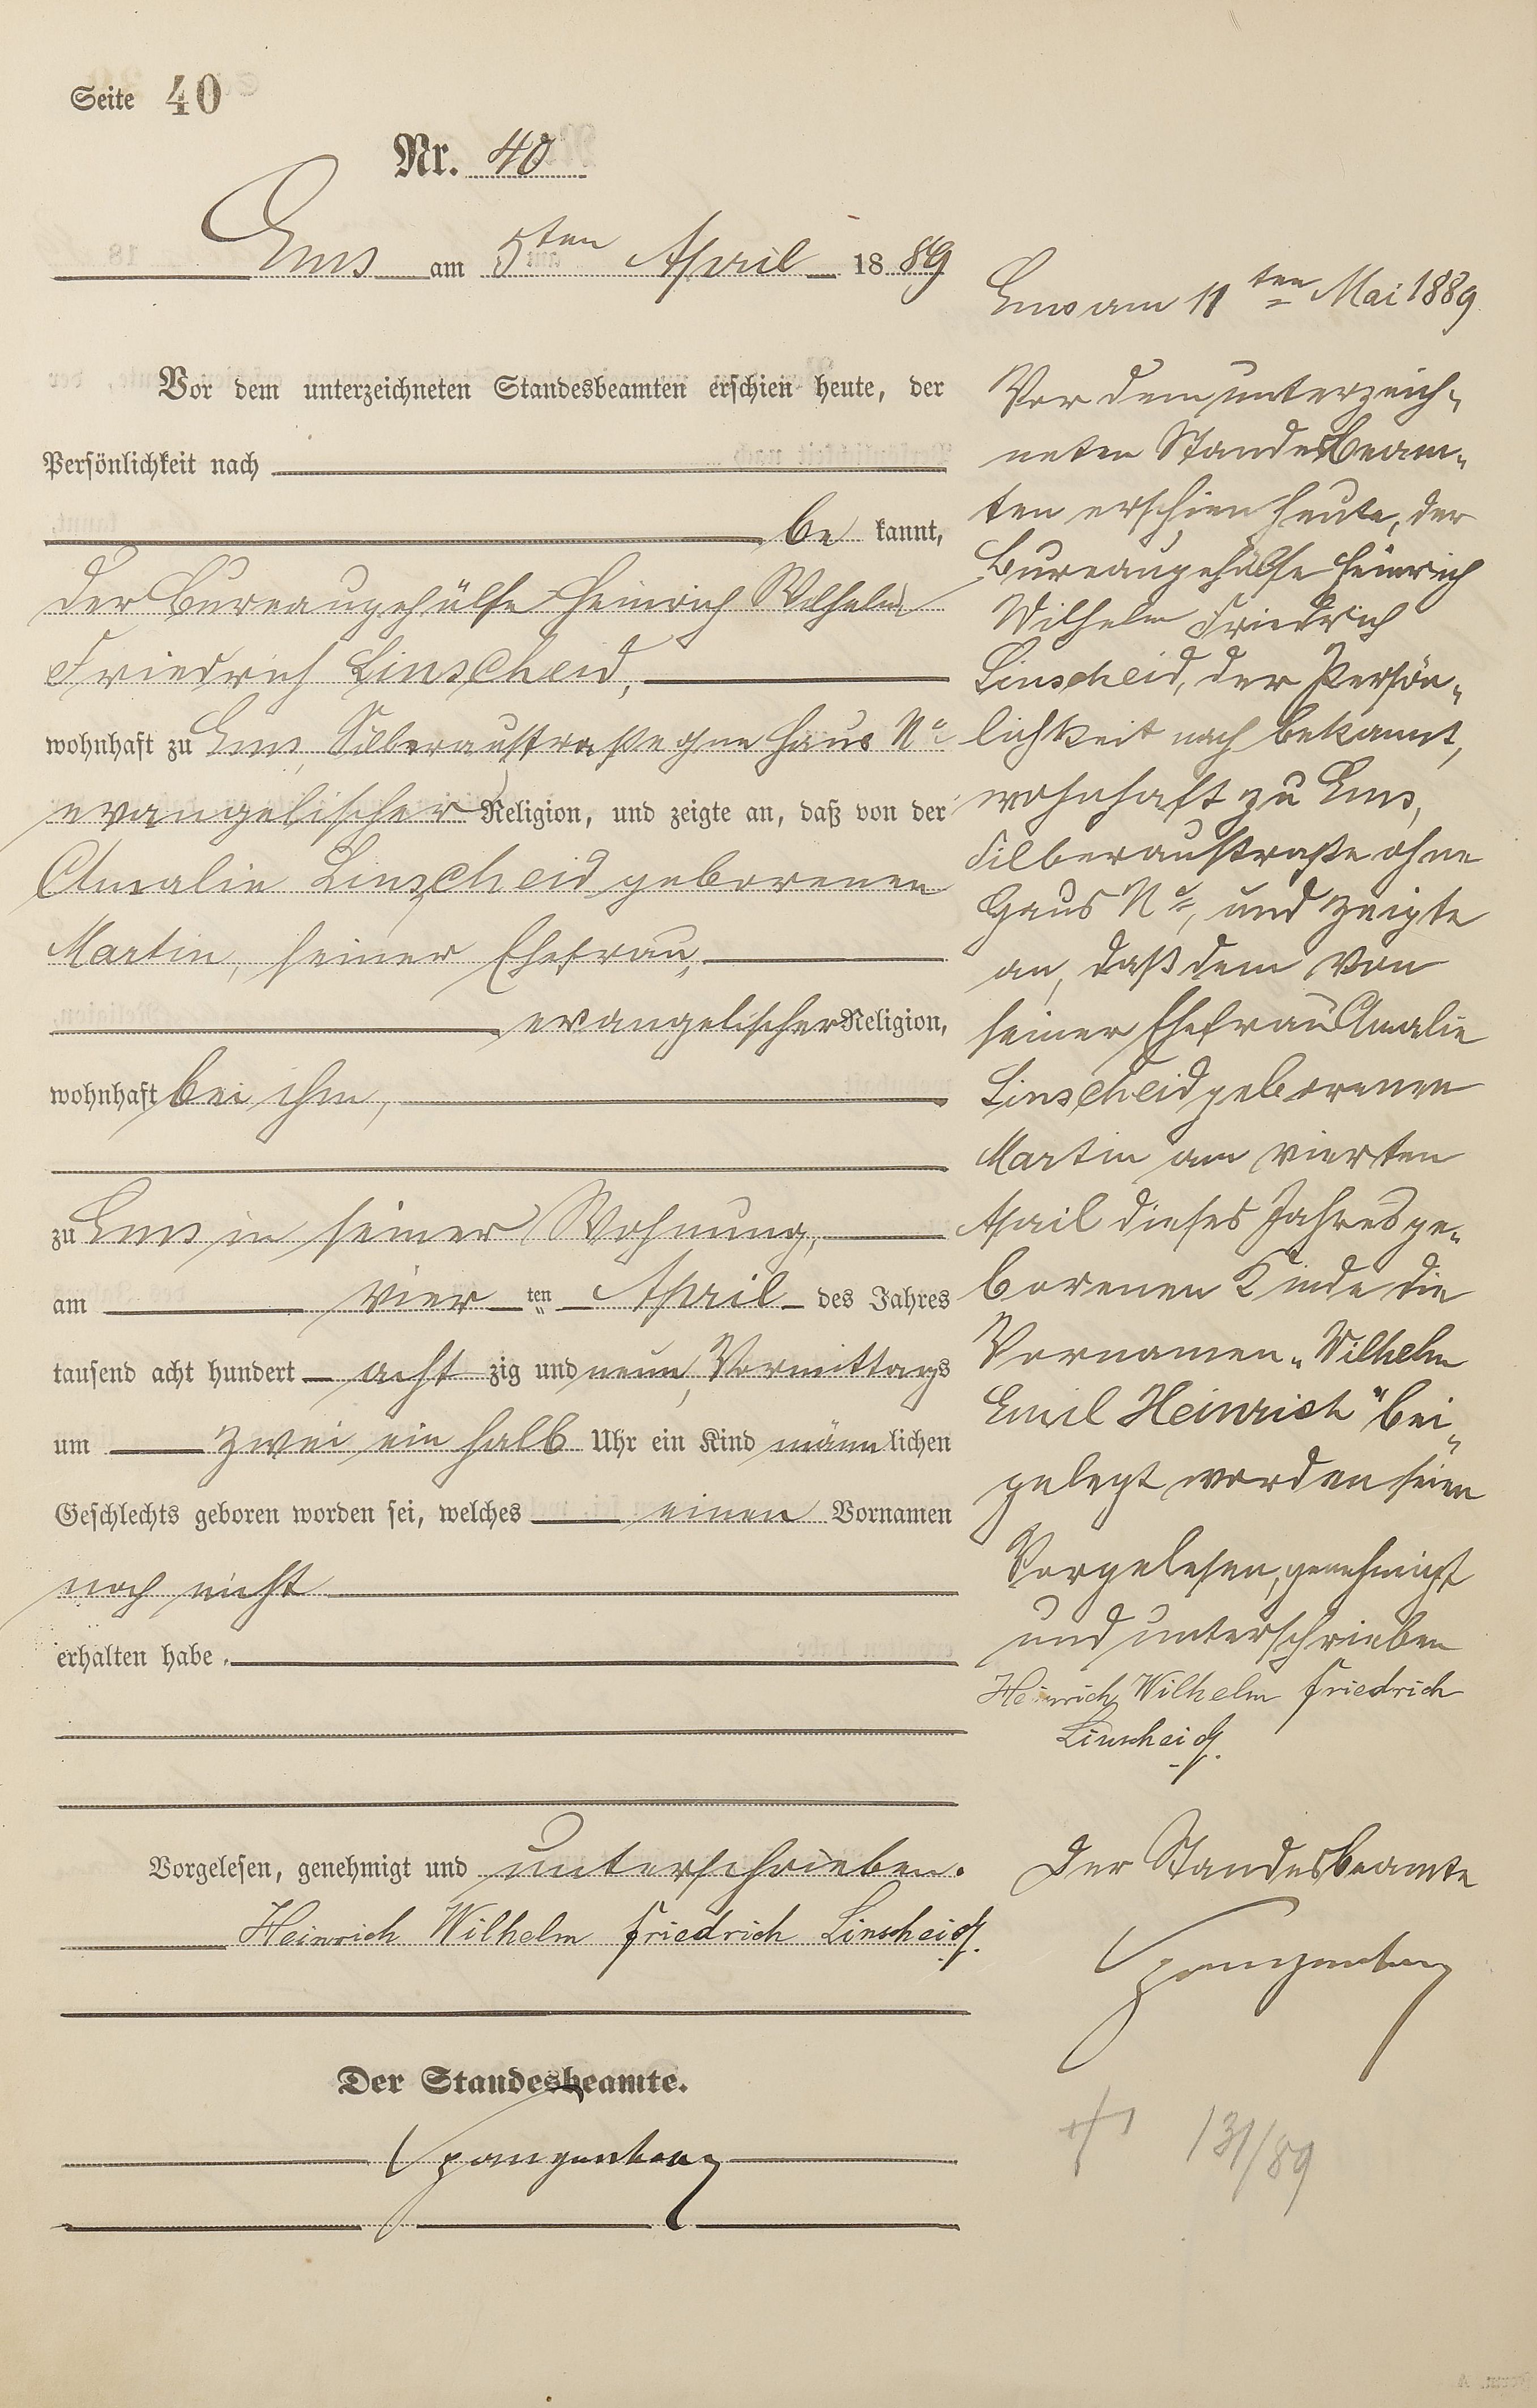 Seite 40
Nr. 40
Ems am 5ten April 1889
Vor dem unterzeichneten Standesbeamten erschien heute, der
Persönlichkeit nach
be kannt,
der Bureaugehülfe Heinrich Wilhelm
Friedrich Linscheid,
wohnhaft zu Ems, Silberaustraße ohne Haus No
evangelischer Religion, und zeigte an, daß von der
Amalie Linscheid geborenen
Martin, seiner Ehefrau,
evangelischer Religion,
wohnhaft bei ihm,
zu Ems in seiner Wohnung,
am vier ten April des Jahres
tausend acht hundert acht zig und neun, Vormittags
um zwei ein halb Uhr ein Kind männlichen
Geschlechts geboren worden sei, welches einen Vornamen
noch nicht
erhalten habe.
Vorgelesen, genehmigt und unterschrieben.
Heinrich Wilhelm Friedrich Linscheid.
Der Standesbeamte.
Spangenberg
Ems am 11ten Mai 1889
Vor dem unterzeich-
neten Standesbeam-
ten erschien heute, der
Bureaugehülfe Heinrich
Wilhelm Friedrich
Linscheid, der Persön-
lichkeit nach bekannt,
wohnhaft zu Ems,
Silberaustraße ohne
Haus No, und zeigte
an, daß dem von
seiner Ehefrau Amalie
Linscheid geborenen
Martin am vierten
April dieses Jahres ge-
borenen Kinde die
Vornamen „Wilhelm
Emil Heinrich" bei-
gelegt worden seien
Vorgelesen, genehmigt
und unterschrieben
Heinrich Wilhelm Friedrich
Linscheid.
Der Standesbeamte
Spangenberg
† 131/89